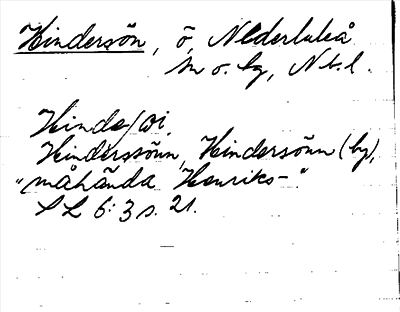 Hindersön, ö, Nederluleå
sn o. by, Nb. l.
Hinde/öi,
Hinderssönn, Hindersönn (by),
"måhända Henriks-".
SL 6: 3 s. 21.